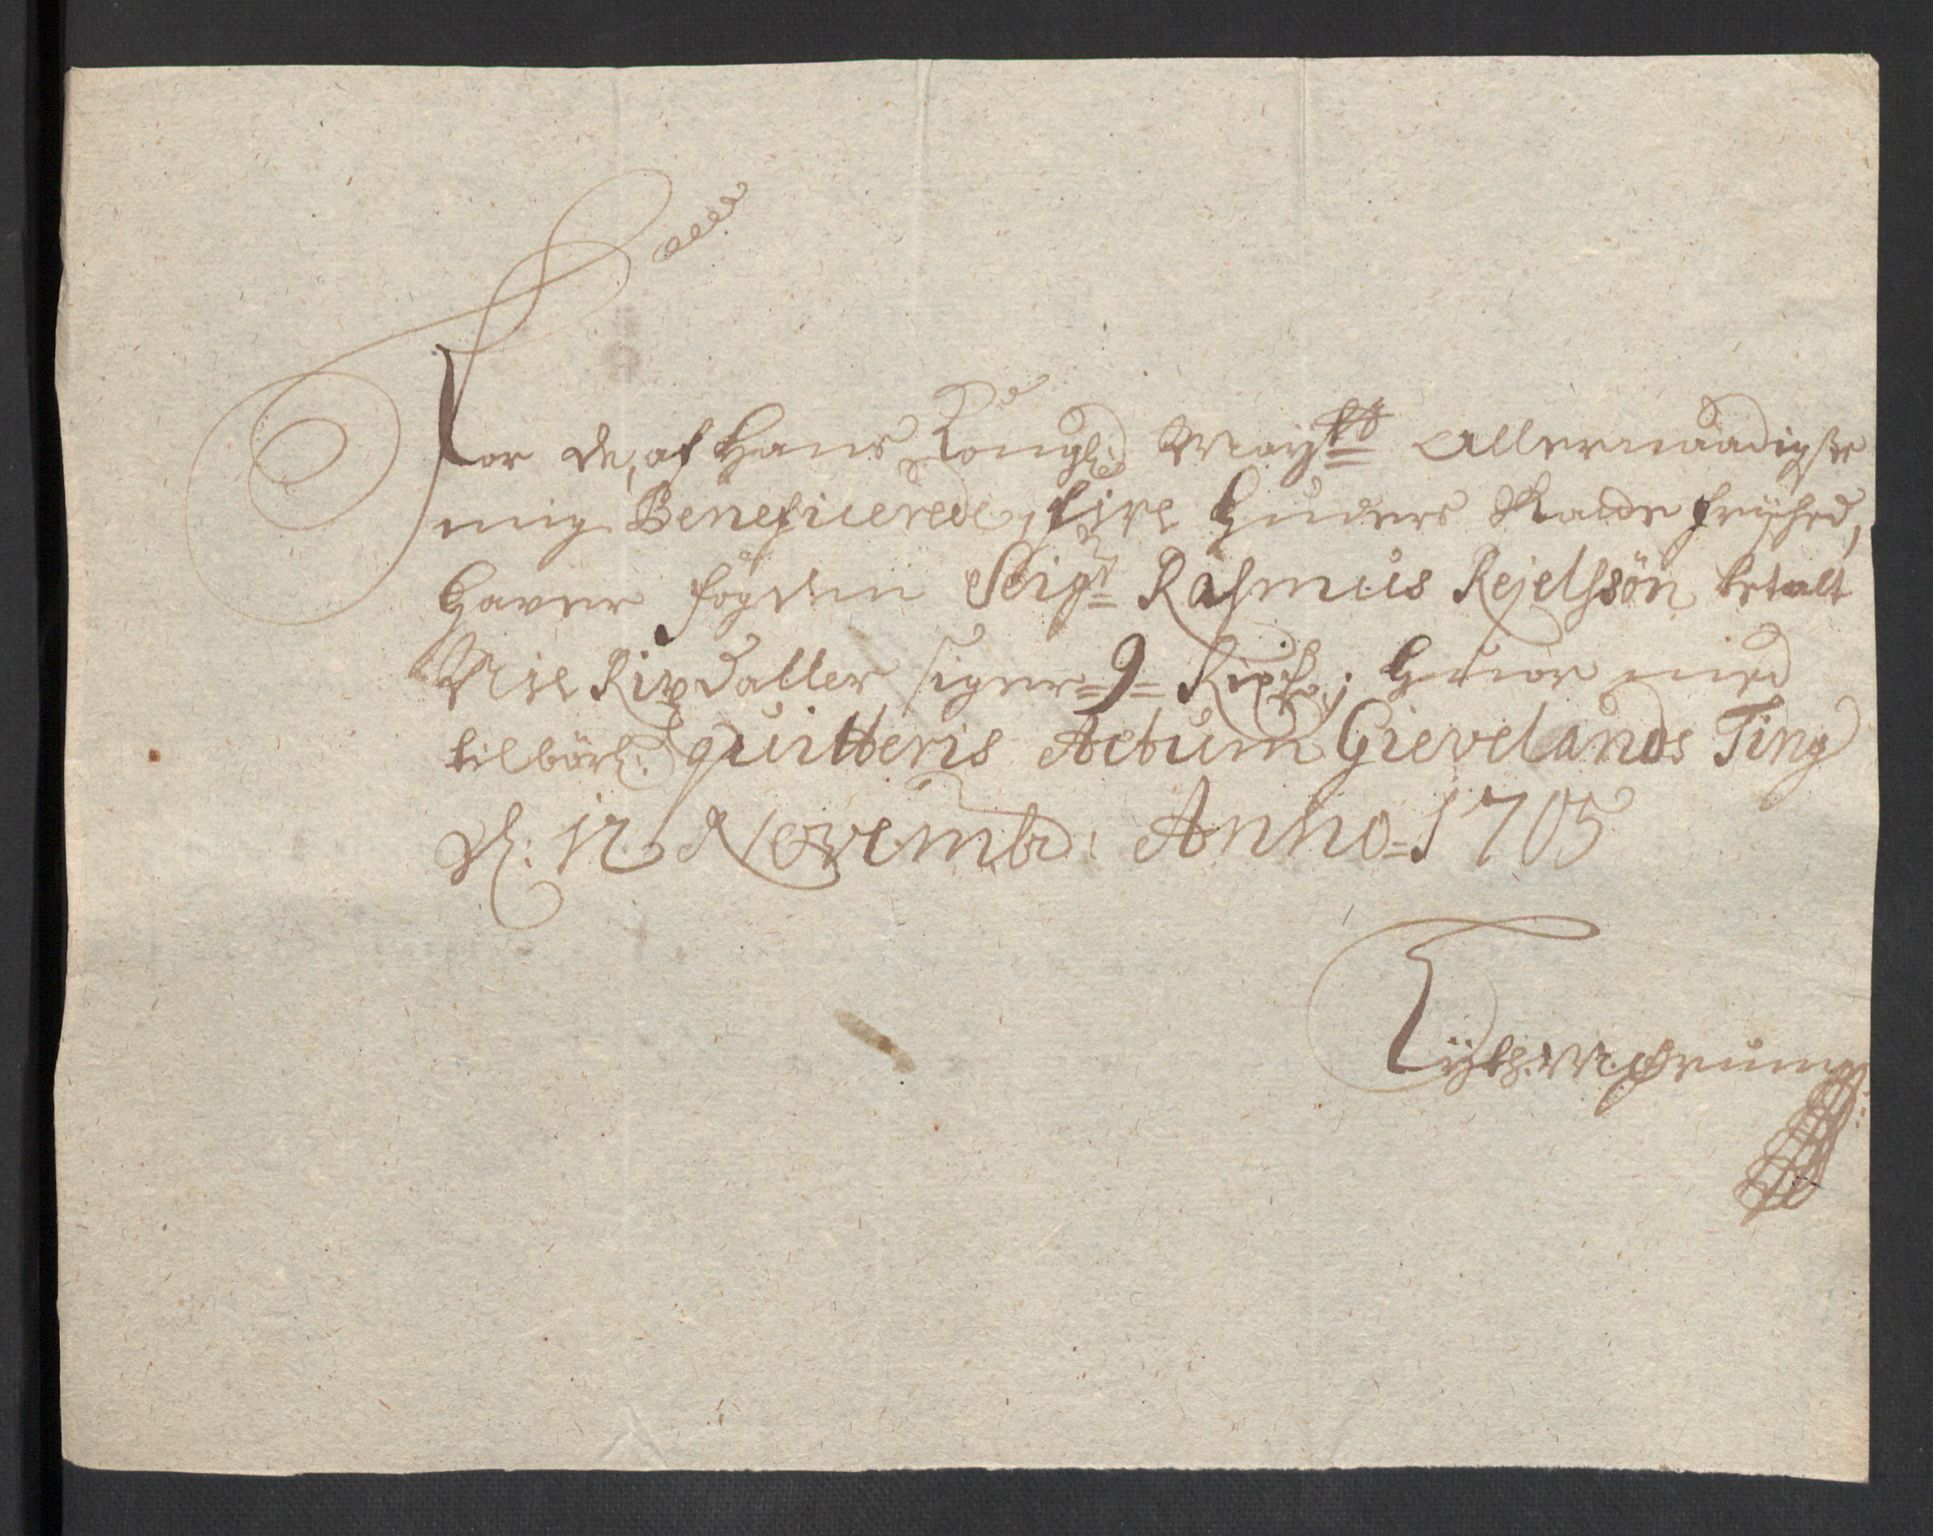 For de, af Hans Kongl: Mayts Allernaadigste
mig Beneficerede, fire Huders Skatte frijhed,
Haver fogden Seigr Rasmus Rejelssön betalt
Nie Rixdaller siger 9 Rixdr; Hvor med
tilbörl: quitteris Actum Gievelands Ting
d: 12 Novembr: Anno 1705